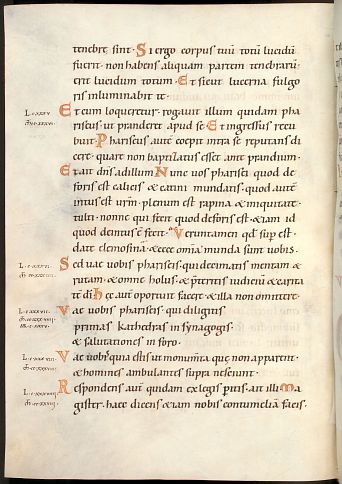 tenebre sint · Si ergo corpus tuū totū lucidū
fuerit · non habens aliquam partem tenebrarū ·
erit lucidum totum · Et sicut lucerna fulgo
ris inluminabit te ·
Et cum loqueretur · rogavit illum quidam pha
riseus ut pranderet apud se · Et ingressus recu
buit · Phariseus autē coepit intra se reputans di
cere · quare non baptizatus esset ante prandium ·
Et ait dn̄s ad illum · Nunc vos pharisei quod de
foris est calicis & catini mundatis · quod autē
intus est vr̄m · plenum est rapina & iniquitate ·
stulti · nonne qui fecit quod deforis est · & iam id
quod deintus ē fecit · Verumtamen qd̄ sup est ·
date elemosinā · & ecce om̄ia munda sunt vobis ·
Sed vae vobis phariseis · qui decimatis mentam &
rutam · & omne holus · & p̄teritis iudiciū & carita
tē dī · Haec aut oportuit facere · & illa non omittere ·
Vae vobis phariseis · qui diligitis
primas kathedras in synagogis ·
& salutationes in foro ·
Vae vobis quia estis ut monumta quę non apparent ·
& homines ambulantes supra nesciunt ·
Respondens aut quidam ex legis peritis · ait illi · Ma
gister · haec dicens & iam nobis contumeliā facis ·